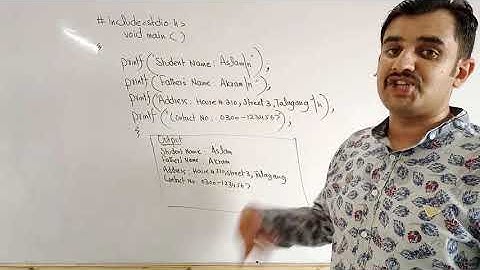 #include<stdio.h>
void main( )
{
printf("Student Name: Aslam\n");
printf("Father's Name: Akram\n");
printf(Address: House # 310, Street 3, Talagang \n");
printf("Contact No: 0300-1234567);
}
Output
Student Name: Aslam
Father's Name: Akram
Address: House # 310, street 3, Talagang
Contact No: 0300-1234567